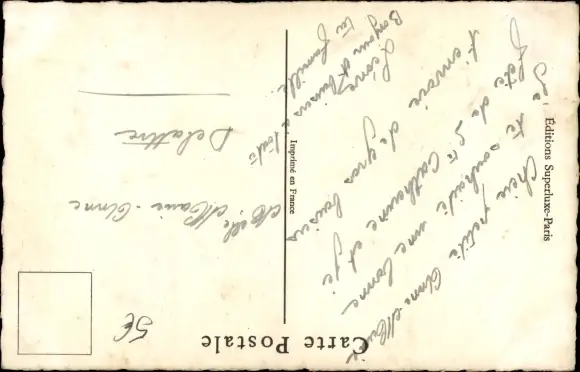 Carte Postale
Chère petite Anne Marie
Je te souhaite une bonne
fête de Ste Catherine et je
t'envoie de gros baisers
Bonjour et baisers à toute
ta famille
Melle Marie-Anne
Delattre
5€
Éditions Superluxe-Paris
Imprimé en France